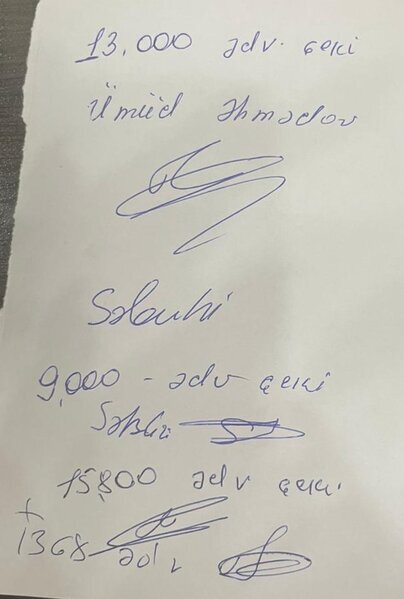 13.000 ədv. çeki
Ümüd Əhmədov
9,000 - ədv çeki
15,800 ədv çeki
+
1368 ədv